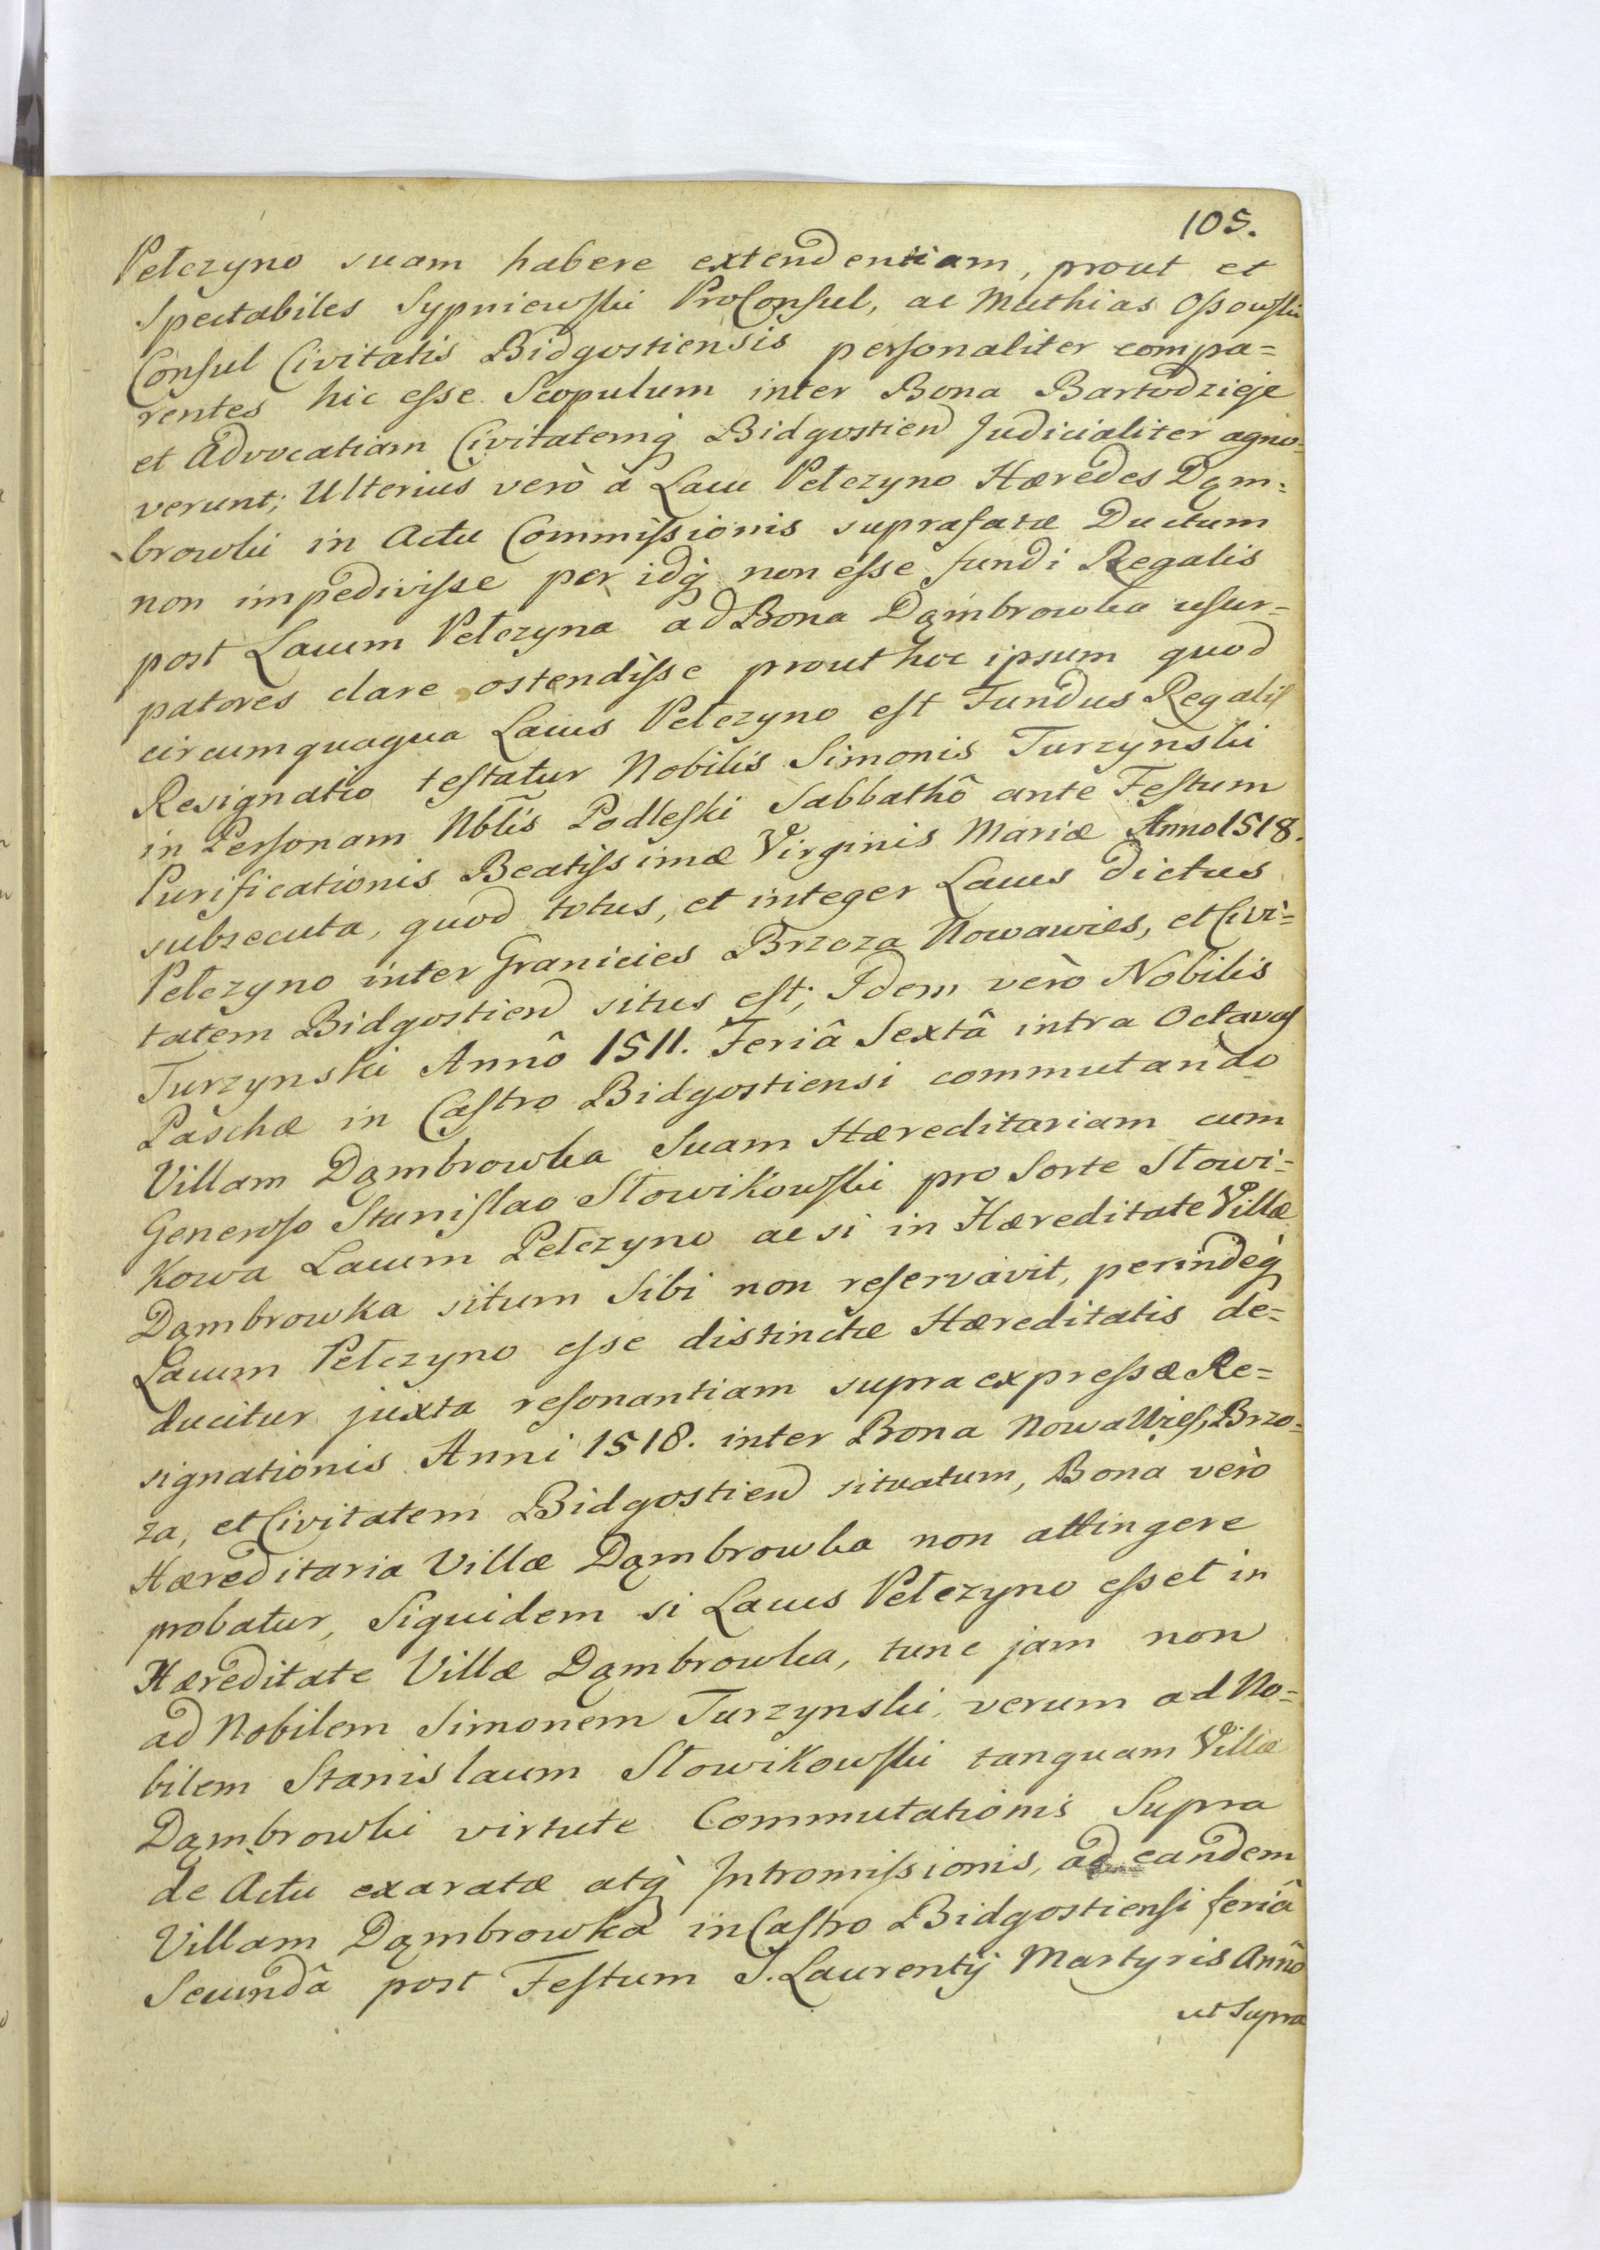 105.
Pełczyno suam habere extendentiam, prout et
Spectabiles Sypniewski ProConsul, ac Mathias Ossowski
Consul Civitatis Bidgostiensis personaliter compa=
rentes hic esse Scopulum inter Bona Bartodzieje
et Advocatiam Civitatemq́ Bidgostien Judicialiter agno=
verunt; Ulterius verò à Lacu Pełczyno Hæredes Dąm=
browki in Actu Commissionis suprafatæ Ductum
non impedivisse per idq́ non esse fundi Regalis
post Lacum Pełczyna ad Bona Dąmbrowka usur=
patores clare ostendisse prout hoc ipsum quod
circumquaqua Lacus Pełczyno est Fundus Regalis
Resignatio testatur Nobilis Simonis Turzynski
in Personam Nblis Podleski Sabbathô ante Festum
Purificationis Beatissimæ Virginis Mariæ Anno 1518.
subsecuta, quod totus, et integer Lacus dictus
Pełczyno inter Granicies Brzoza Nowawies, et Civi=
tatem Bidgostien situs est; Idem verò Nobilis
Turzynski Annô 1511. Feriâ Sextâ intra Octavas
Paschæ in Castro Bidgostiensi commutando
Villam Dąmbrowka Suam Hæreditariam cum
Generoso Stanislao Słowikowski pro Sorte Słowi=
kowa Lacum Pełczyno ac si in Hæreditate Villæ
Dąmbrowka situm Sibi non reservavit, perindeq́
Lacum Pełczyno esse distinctæ Hæreditatis de=
ducitur juxta resonantiam supra expressæ Re=
signationis Anni 1518. inter Bona Nowa Wies, Brzo=
za, et Civitatem Bidgostien situatum, Bona verò
Hæreditaria Villæ Dąmbrowka non attingere
probatur, Siquidem si Lacus Pełczyno esset in
Hæreditate Villæ Dąmbrowka, tunc jam non
ad Nobilem Simonem Turzynski, verum ad No=
bilem Stanislaum Słowikowski tanquam Villæ
Dąmbrowki virtute Commutationis Supra
de Actu exaratæ atq́ Intromissionis, ad eandem
Villam Dąmbrowka in Castro Bidgostiensi feriâ
Secundâ post Festum S. Laurentij Martyris Annô
ut Supra